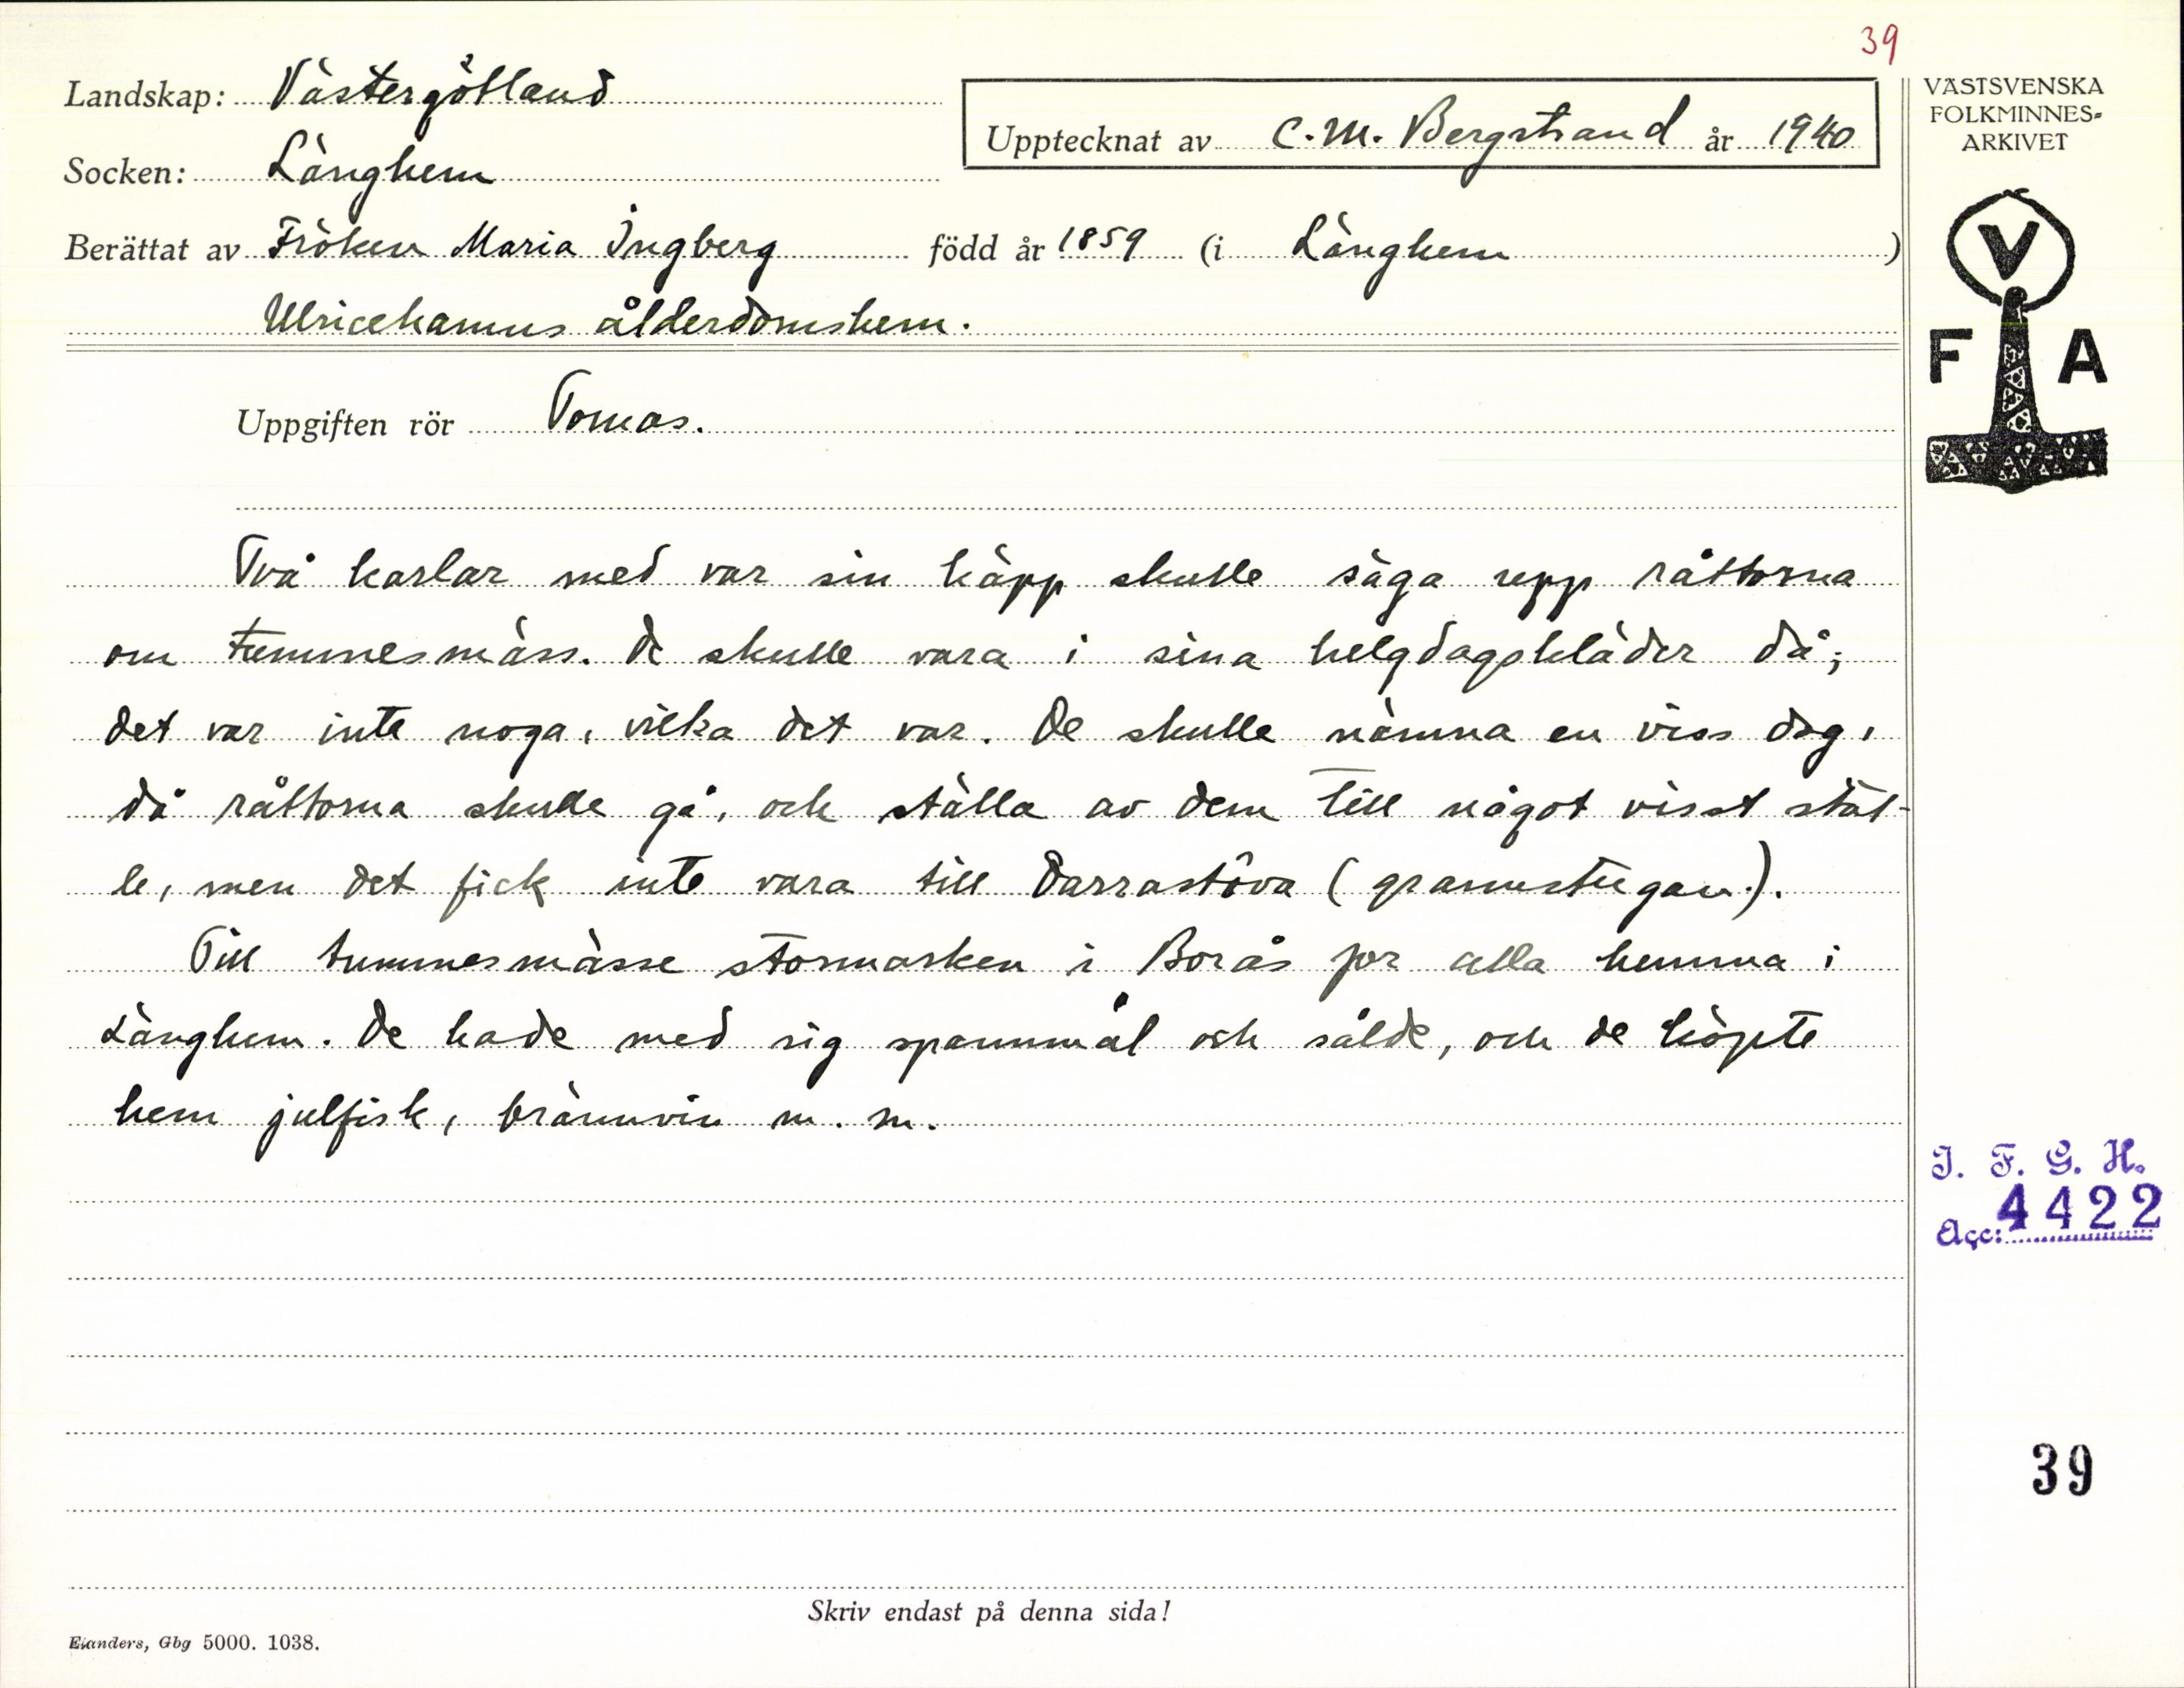 39
Landskap: Västergötland
Socken: Länghem
Upptecknat av C. M. Bergstrand år 1940
Berättat av Fröken Maria Ingberg född år 1859 (i Länghem)
Ulricehamns ålderdomshem.
Uppgiften rör Tomas.
Två karlar med var sin käpp skulle säga upp råttorna
om tummesmäss. De skulle vara i sina helgdagskläder då;
det var inte noga, vilka det var. De skulle nämna en viss dag,
då råttorna skulle gå, och ställa av dem till något visst stäl-
le, men det fick inte vara till Darrastôva (grannstugan).
Till tummesmässe stormarken i Borås for alla hemma i
Länghem. De hade med sig spannmål och sålde, och de köpte
hem julfisk, brännvin m. m.
Skriv endast på denna sida!
Elanders, Gbg 5000. 1038.
VÄSTSVENSKA
FOLKMINNES-
ARKIVET
V
F A
I. F. G. H.
Acc: 4422
39